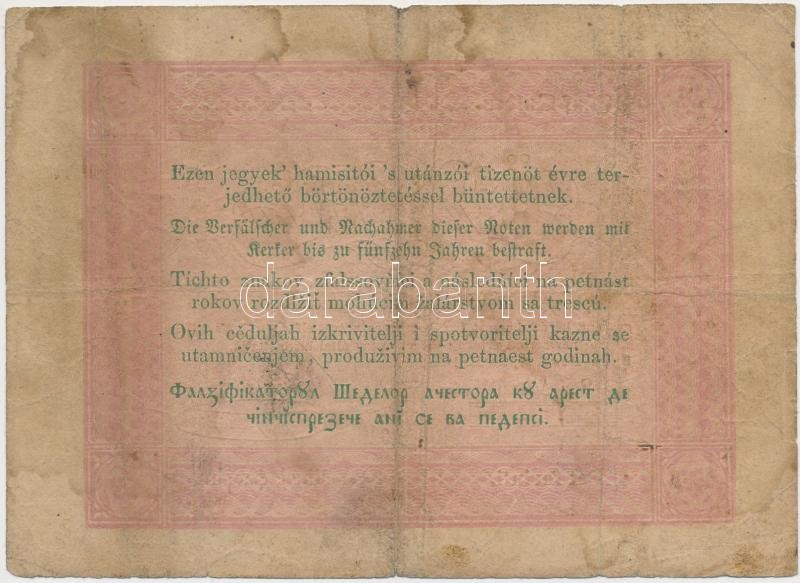 Ezen jegyek' hamisitói 's utánzói tizenöt évre ter-
jedhető börtönöztetéssel büntettetnek.
Die Verfälscher und Nachahmer dieser Noten werden mit
Kerker bis zu fünfzehn Jahren bestraft.
Tíchto a následňíci na petnást
rokov rozdlžiť sa trescú.
Ovih cěduljah izkrivitelji i spotvoritelji kazne se
utamničenjem, produživim na petnaest godinah.
Фалꙁіфікаторꙋл Шеделор ачестора кꙋ арест де
чінчіспреꙁече ані се ва педепсі.
darabanth